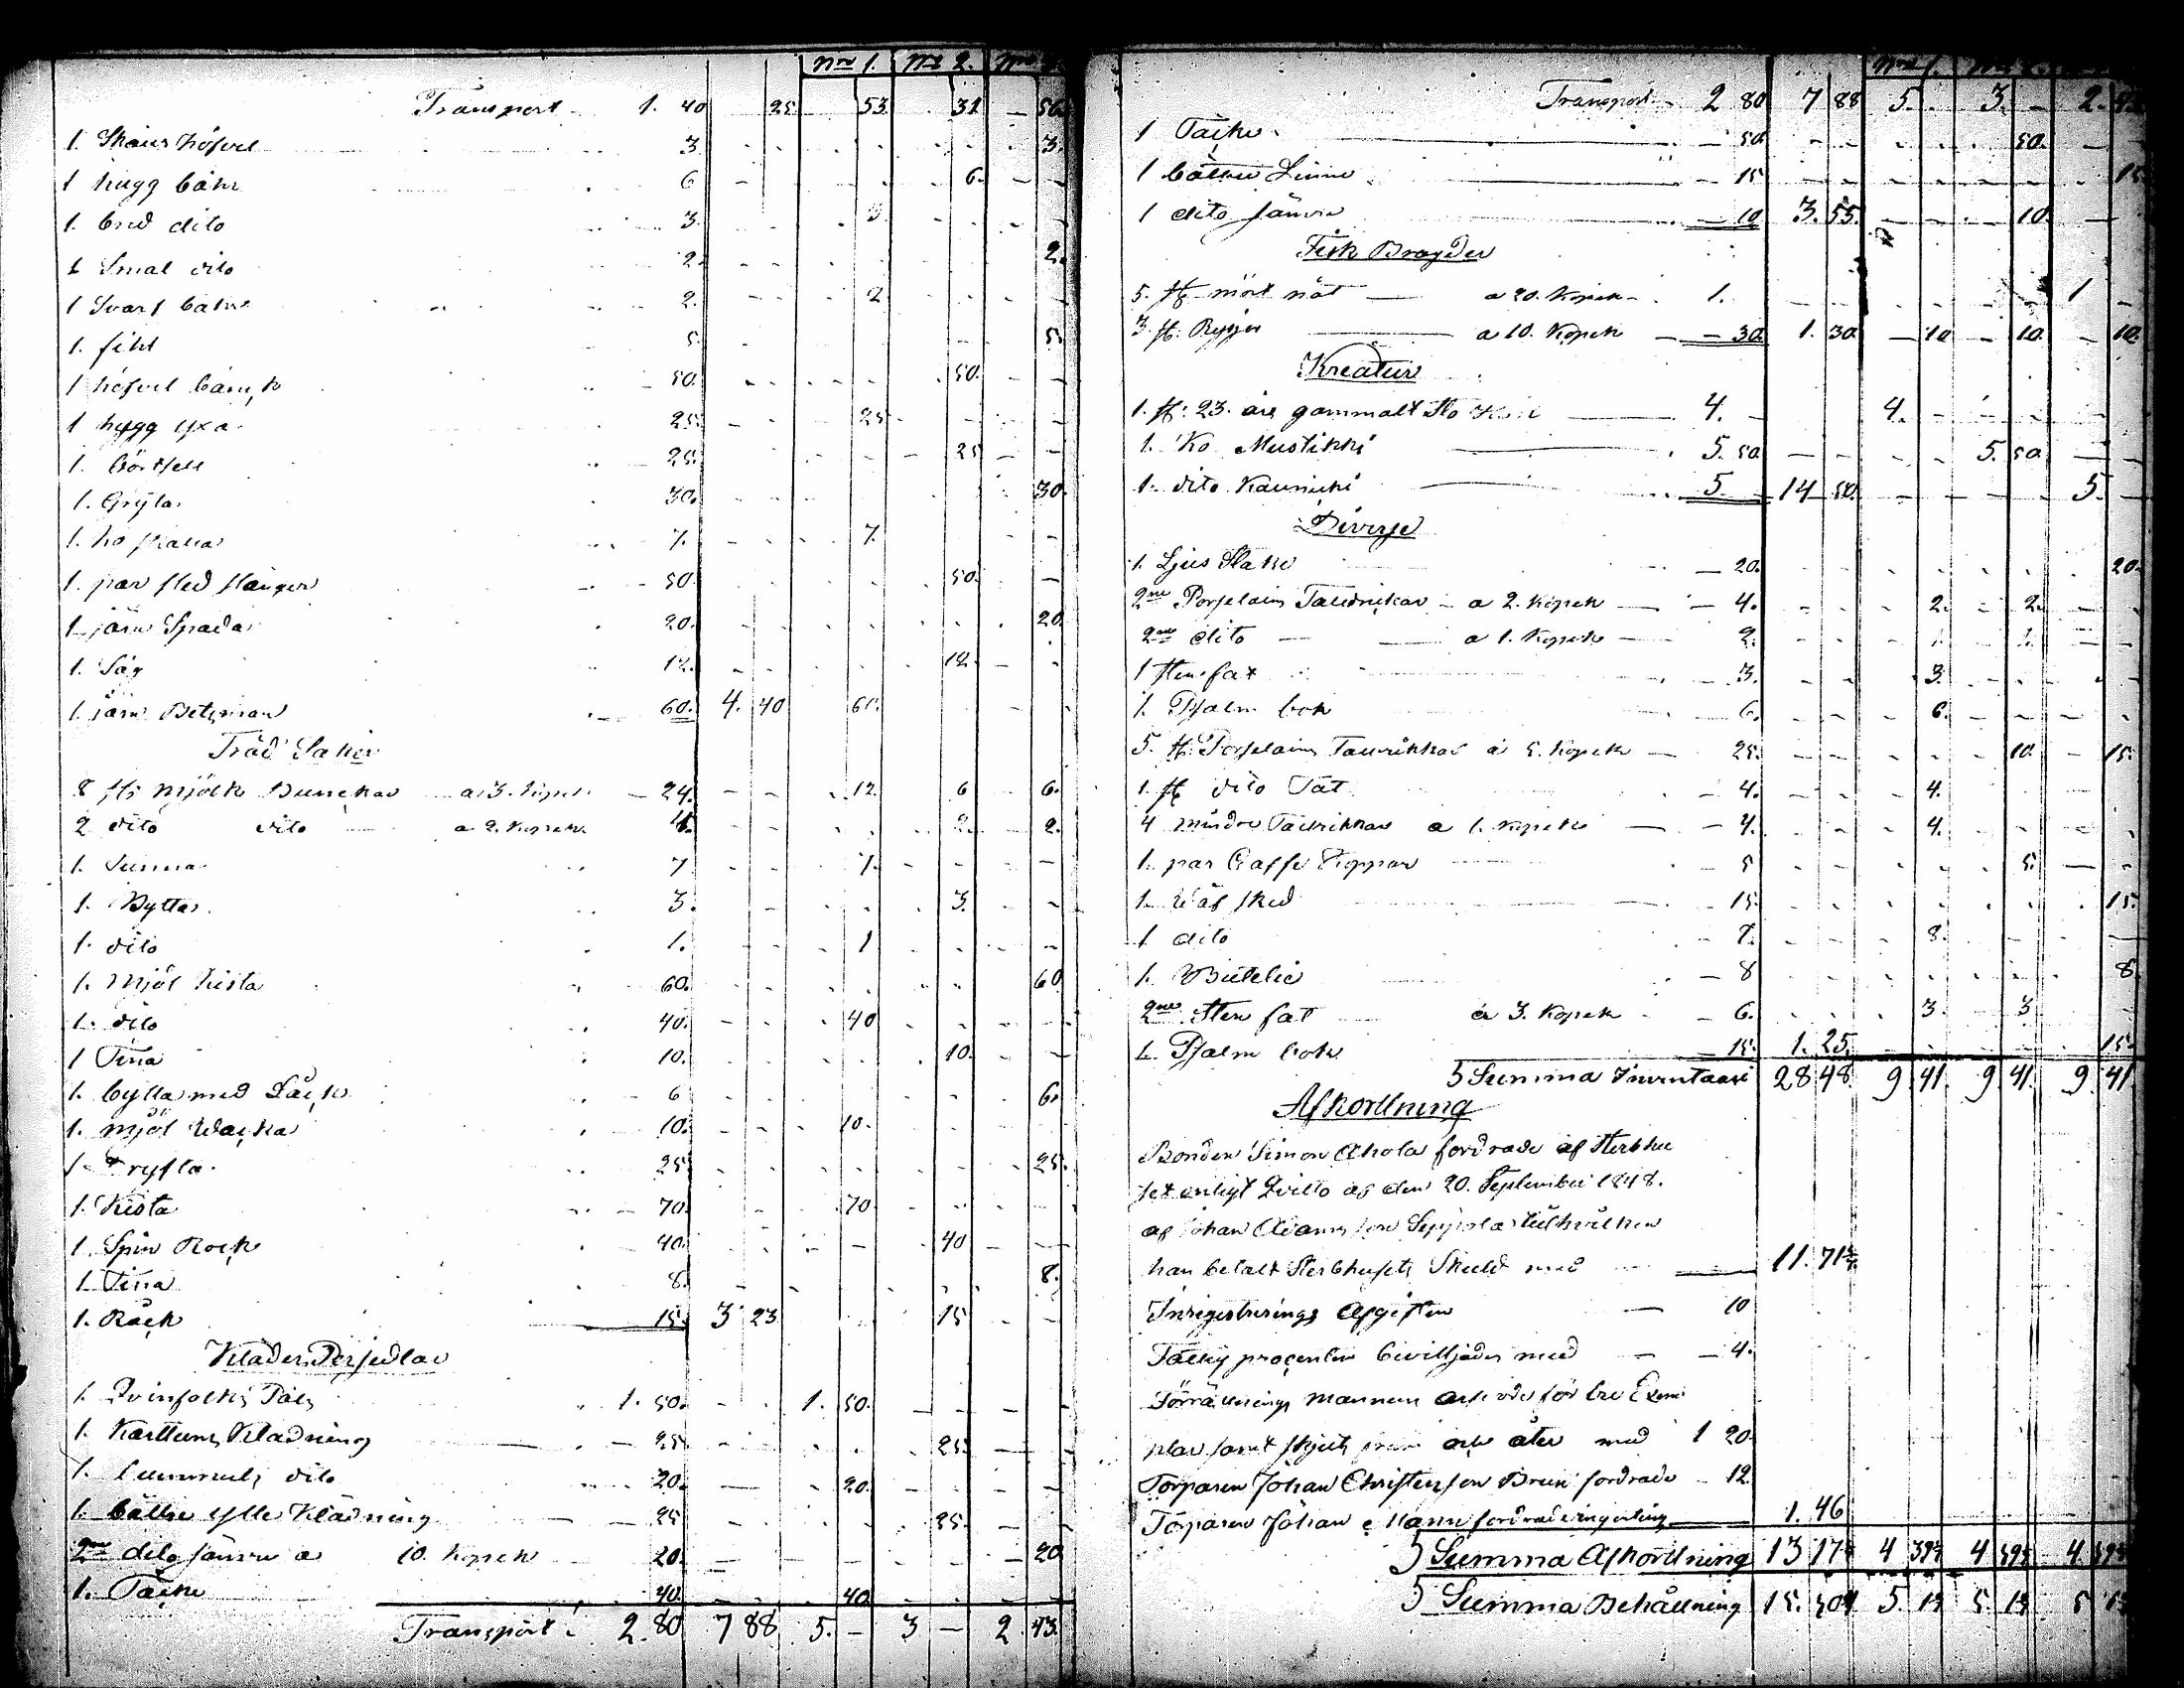 No 1. No 2. No
Transport 1. 40 25 53 31 56
1. Skaus höfvel 3 3.
1 hugg 6 6.
1. bred dito 3. 3
1 Smal dito 2. 2.
1 Svarf 2. 2
1. fihl 5. 5.
1 höfvel bänk 50. 50.
1 hygg yxa 25 25
1. 25. 25
1. Gryta 30. 30.
1. ko skälla 7. 7.
1. par sled stänger 50. 50.
1 järn Spada 20. 20
1. Såg 12. 12
1. järn Betsman 60. 4. 40 60.
Träd Saker
8 st: mjölk Bunckar a 3. Kopek 24. 12. 6 6.
2 dito dito a 2. Kopek 4. 2. 2.
1. Sunna 7 7.
1. Bytta 3. 3.
1. dito 1. 1
1. Mjöl kista 60. 60
1. dito 40. 40
1 Tina 10. 10.
1. bytta med Låck 6 6.
1. mjöl Wacka 10. 10.
1 Tryfta 25 25.
1. Kista 70. 70
1. Spin Rock 40. 40
1. Tina 8. 8.
1. Räck 15. 3 23 15
Kläder Persedlar
1. Qvinfolks Päls 1. 50. 1. 50.
1. Karttuns Kladning 25 25.
1. dito 20. 20.
1. bättre ylle Kladning 25 25.
2ne dito sämre a 10. kopek 20. 20
1. Täcke 40. 40
Transport 2. 80 7 88 5. — 3 — 2 43.
No 1.
Transport 2 80 7 88 5. 3. — 2.
1 Täcke 50. 50.
1 bättre Linne 15 15
1 dito sämre 10 3. 55. 10.
Fisk Bragder
5. st mört nät a 20. Kopek 1. 1
3 st. Ryssjor a 10. Kopek 30. 1. 30. 10 10. 10.
Kreatur
1. st: 23. års gammalt Sto 4. 4.
1. Ko Mustikki 5. 50 5. 50
1. dito Kaunicki 5. 14 50. 5.
Diverse
1. Ljus Stake 20. 20.
2ne Porselains Taldrickar a 2. Kopek 4. 2. 2.
2ne dito a 1. Kopek 2. 1. 1.
1 Sten fat 3. 3.
1. Psalm bok 6. 6.
5. st: Porselains Taurikkar a 5. Kopek 25. 10. 15.
1. st dito Fat 4. 4.
4 mindre Taurikkar a 1. kopek 4. 4.
1. par Caffe Koppar 5 5.
1. Wäf sked 15. 15.
1 dito 8.
1. Butelie 8 8.
2ne Sten fat a 3. Kopek 6. 3. 3
1. Psalm bok 15. 1. 25. 15.
Summa Inventarii 28 48 9 41. 9 41. 9 41
Afkortning
Bonden Simon Ahola fordrade af Sterbhu
set enligt Qvitto af den 20. September 1848.
af Johan Adamsson Seppola tillhvilken
han betalt Sterbhusets Skuld med 11. 71
Inregistrerings Afgiften 10
Fattig procenten bevilljades med 4.
Förrättnings mannens arfvode för tre Exem
plar samt skjuts med 1 20.
Torparen Johan Christersson Brun fordrade 12
Torparen Johan fordrade ingenting 1. 46
Summa Afkortning 13 17 4 39 4 39 4
Summa Behållning 15. 30 5. 1 5. 1 5